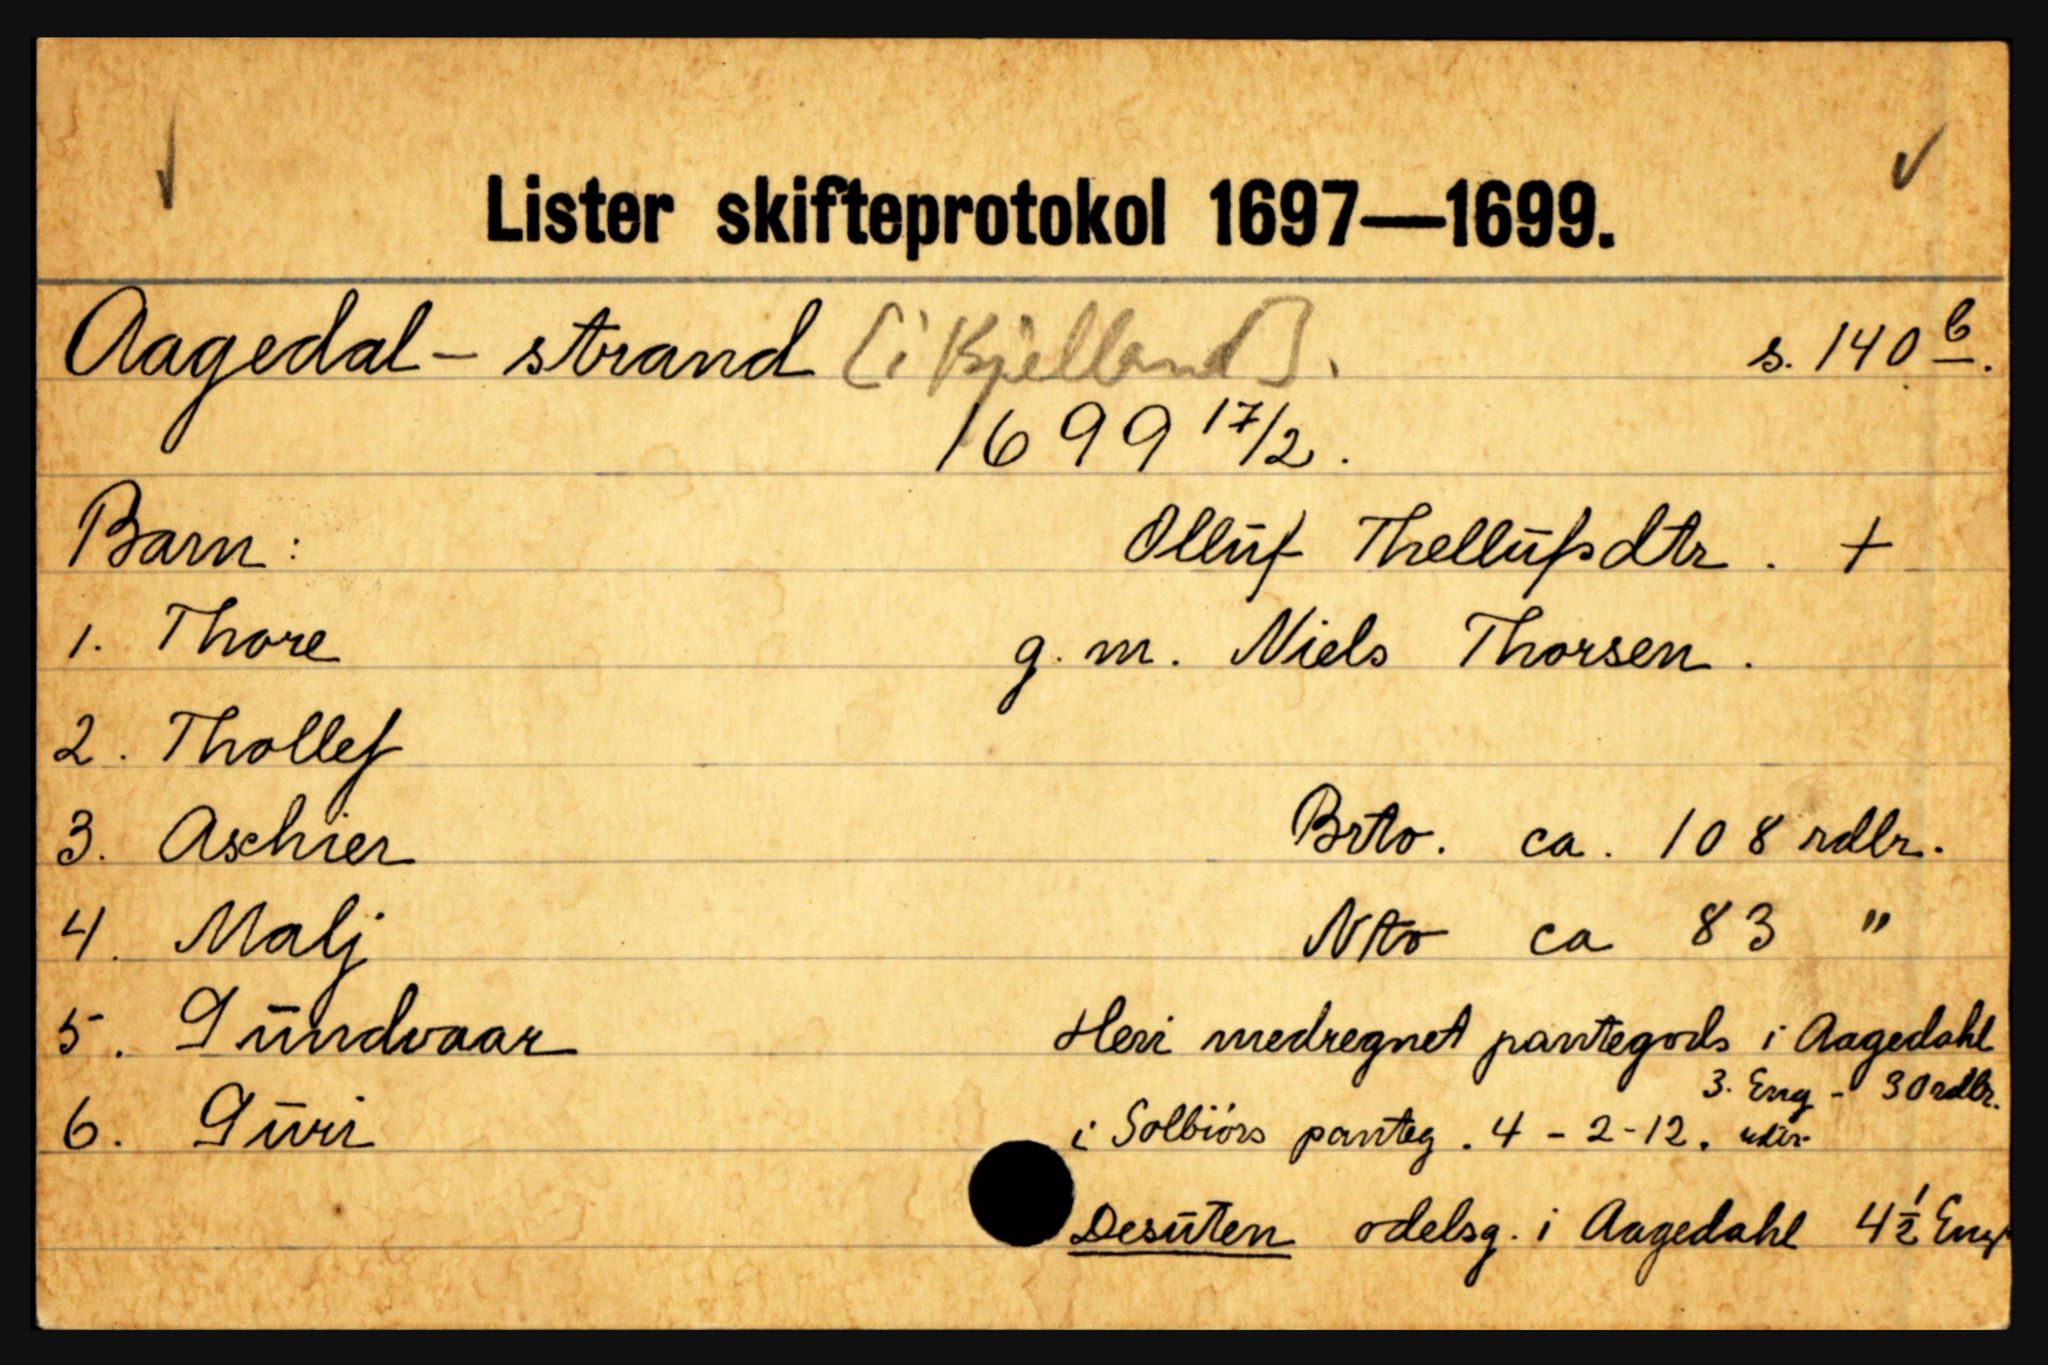 Lister skifteprotokol 1697—1699.
Aagedal - strand [i Kjelland]. s. 140 b.
1699 17/2.
Barn: Olluf Thellufsdtr. +
1. Thore g. m. Niels Thorsen.
2. Thollef
3. Aschier Brto. ca. 108 rdlr.
4. Malj Nto ca 83 "
5. Gundvaar Heri medregnet pantegods i Aagedahl
3. Eng - 30 rdlr.
6. Guri i Solbiórs panteg. 4 - 2 - 12.
Desuten odelsg. i Aagedahl 4 1/2 Eng